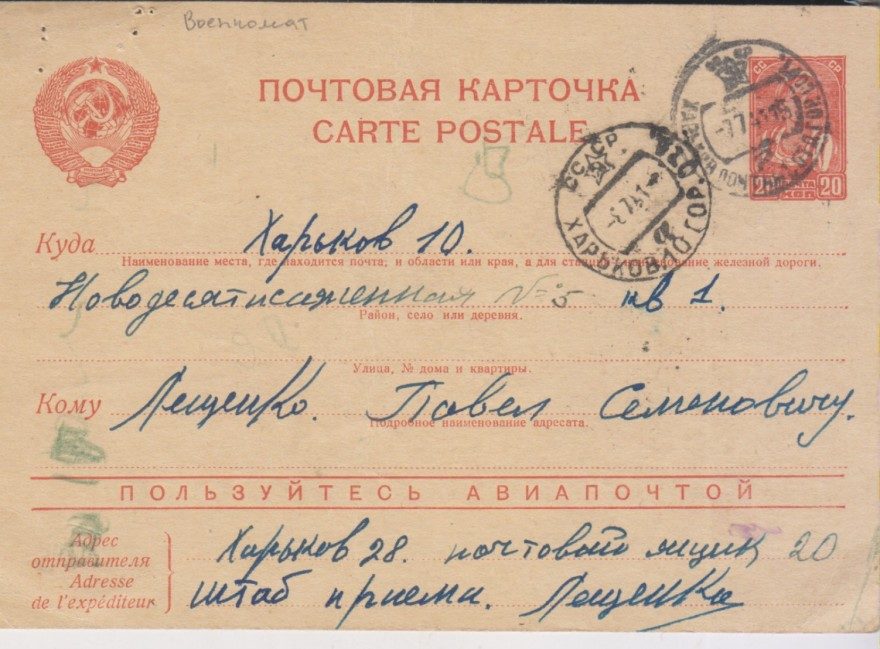 Военкомат
ПОЧТОВАЯ КАРТОЧКА
CARTE POSTALE
СС СР
20
ХАРЬКОВ
Куда Харьков 10.
Наименование места, где находится почта, и области или края, а для станции наименование железной дороги.
Новодесятисаженная №5 кв 1.
Район, село или деревня.
Улица, № дома и квартиры.
Кому Лещенко. Павел Семеновичу.
Подробное наименование адресата.
ПОЛЬЗУЙТЕСЬ АВИАПОЧТОЙ
Адрес отправителя
Adresse de l'expéditeur
Харьков 28. почтовый ящик 20
Штаб приема. Лещенко